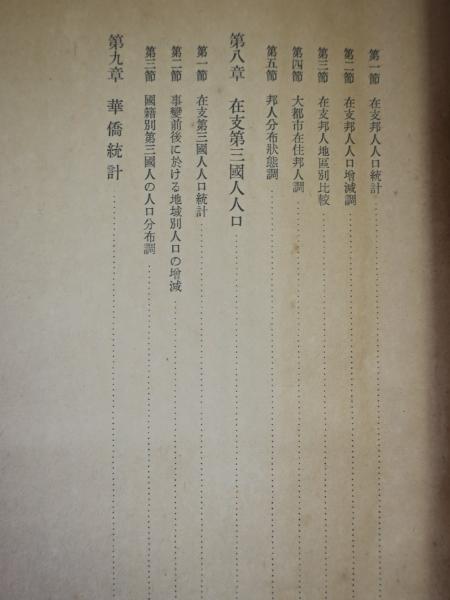 第一節 在支邦人人口統計
第二節 在支邦人人口增減調
第三節 在支邦人地區別比較
第四節 大都市在住邦人調
第五節 邦人分布狀態調
第八章 在支第三國人人口
第一節 在支第三國人人口統計
第二節 事變前後に於ける地域別人口の增減
第三節 國籍別第三國人の人口分布調
第九章 華僑統計